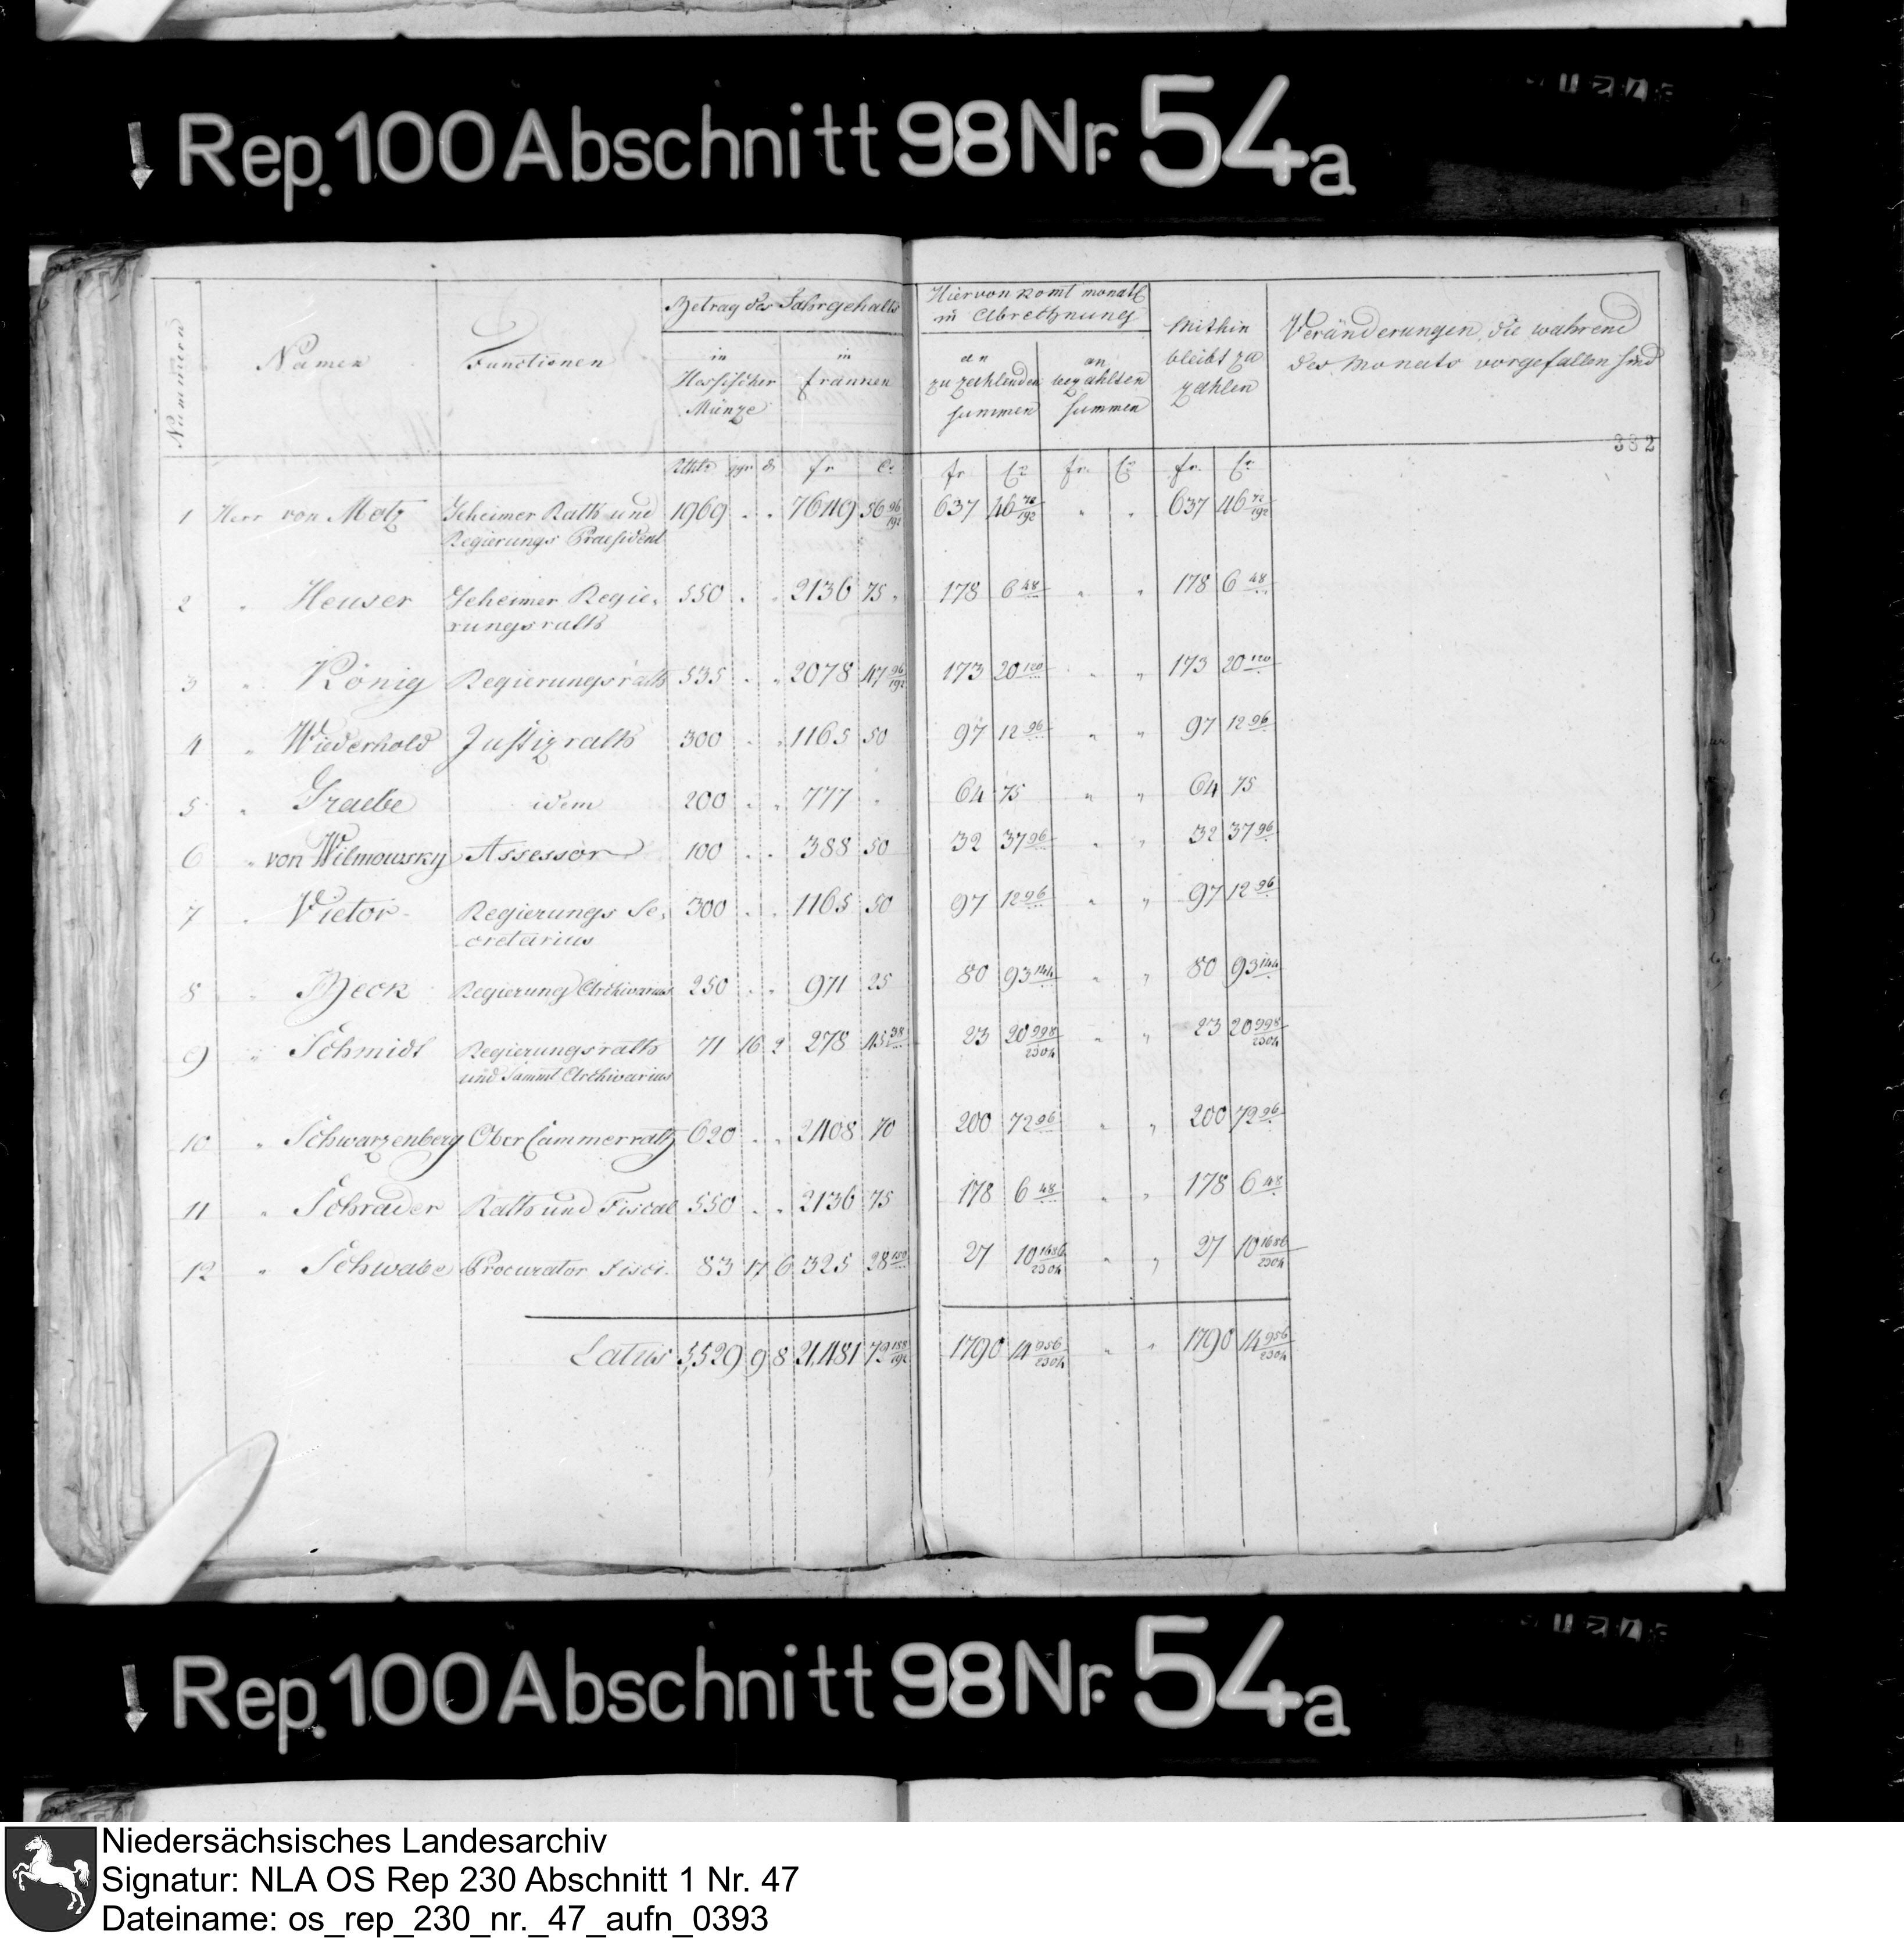 Rep. 100 Abschnitt 98 Nr. 54a
Nummern
Namen
Functionen
Betrag des Jahrgehalts
in Hessischer Münze
in Franken
Hiervon komt monatl
in Abrechnung
an zu zahlenden summen
an bezahlten summen
Mithin bleibt zu zahlen
Veränderungen, die während
des Monats vorgefallen sind
382
Rthlr ggr d fr Ct fr Ct fr. Ct fr. Ct
1 Herr von Motz Geheimer Rath und 1969 . . 7649 56 96/192 637 46 72/192 " " 637 46 72/192
Regierungs Praesident
2 " Heuser Geheimer Regie, 550 . . 2136 75 " 178 6 48 " " 178 6 48
rungsrath
3 " König Regierungsrath 535 . . 2078 47 96/192 173 20 120 " " 173 20 120
4 " Wiederhold Justizrath 300 . . 1165 50 97 12 96 " " 97 12 96
5 " Graebe idem 200 . . 777 " 64 75 " " 64 75
6 " von Wilmowsky Assessor 100 . . 388 50 32 37 96 " " 32 37 96
7 " Vietor Regierungs Se, 300 . . 1165 50 97 12 96 " " 97 12 96
cretarius
8 " Beck Regierung Archivarius 250 . . 971 25 80 93 144 " " 80 93 144
9 " Schmidt Regierungsrath 71 16 2 278 45 38 23 20 998/2304 " " 23 20 998/2304
und Sammt Archivarius
10 " Schwarzenberg Ober Cammerrath 620 . . 2408 70 200 72 96 " " 200 72 96
11 " Schrader Rath und Fiscal 550 . . 2136 75 178 6 48 " " 178 6 48
12 " Schwabe Procurator Fisci. 83 17 6 325 28 150 27 10 1686/2304 " " 27 10 1686/2304
Latus 5,529 9 8 21,481 73 188/192 1790 14 956/2304 " " 1790 14 956/2304
Rep. 100 Abschnitt 98 Nr. 54a
Niedersächsisches Landesarchiv
Signatur: NLA OS Rep 230 Abschnitt 1 Nr. 47
Dateiname: os_rep_230_nr._47_aufn_0393